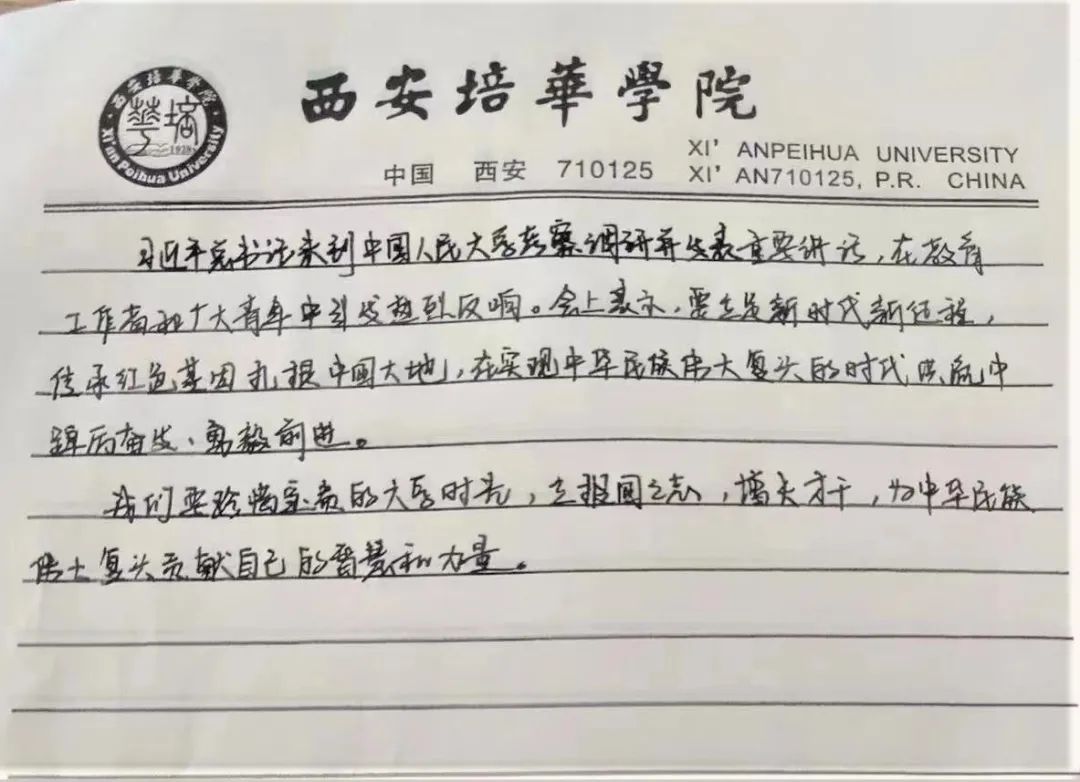 西安培華學院
西安培華學院
華培
1928
Xi'an Peihua University
中国 西安 710125
XI' ANPEIHUA UNIVERSITY
XI' AN710125, P.R. CHINA
习近平总书记来到中国人民大学考察调研并发表重要讲话,在教育
工作者和广大青年中引发热烈反响。会上表示,要立足新时代新征程,
传承红色基因扎根中国大地,在实现中华民族伟大复兴的时代洪流中
踔厉奋发、勇毅前进。
我们要珍惜宝贵的大学时光,立报国之志,增长才干,为中华民族
伟大复兴贡献自己的智慧和力量。